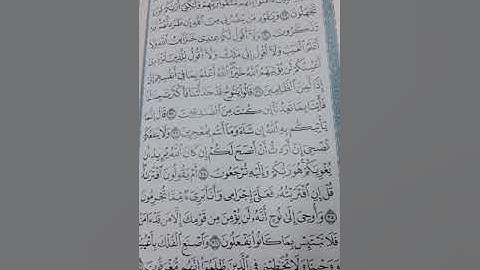 مُّلَٰقُوا۟ رَبِّهِمْ وَلَٰكِنِّىٓ أَرَىٰكُمْ
تَجْهَلُونَ ٢٩ وَيَٰقَوْمِ مَن يَنصُرُنِى مِنَ ٱللَّهِ إِن طَرَدتُّهُمْ
تَذَكَّرُونَ ٣٠ وَلَآ أَقُولُ لَكُمْ عِندِى خَزَآئِنُ ٱللَّهِ وَلَآ
أَعْلَمُ ٱلْغَيْبَ وَلَآ أَقُولُ إِنِّى مَلَكٌ وَلَآ أَقُولُ لِلَّذِينَ تَزْدَرِىٓ
أَعْيُنُكُمْ لَن يُؤْتِيَهُمُ ٱللَّهُ خَيْرًا ٱللَّهُ أَعْلَمُ بِمَا فِىٓ أَنفُسِهِمْ
إِذًا لَّمِنَ ٱلظَّٰلِمِينَ ٣١ قَالُوا۟ يَٰنُوحُ قَدْ جَٰدَلْتَنَا فَأَكْثَرْتَ جِدَٰلَنَا
فَأْتِنَا بِمَا تَعِدُنَآ إِن كُنتَ مِنَ ٱلصَّٰدِقِينَ ٣٢ قَالَ إِنَّمَا
يَأْتِيكُم بِهِ ٱللَّهُ إِن شَآءَ وَمَآ أَنتُم بِمُعْجِزِينَ ٣٣ وَلَا يَنفَعُكُمْ
نُصْحِىٓ إِنْ أَرَدتُّ أَنْ أَنصَحَ لَكُمْ إِن كَانَ ٱللَّهُ يُرِيدُ أَن
يُغْوِيَكُمْ هُوَ رَبُّكُمْ وَإِلَيْهِ تُرْجَعُونَ ٣٤ أَمْ يَقُولُونَ ٱفْتَرَىٰهُ
قُلْ إِنِ ٱفْتَرَيْتُهُۥ فَعَلَىَّ إِجْرَامِى وَأَنَا۠ بَرِىٓءٌ مِّمَّا تُجْرِمُونَ
٣٥ وَأُوحِىَ إِلَىٰ نُوحٍ أَنَّهُۥ لَن يُؤْمِنَ مِن قَوْمِكَ إِلَّا مَن قَدْ ءَامَنَ
فَلَا تَبْتَئِسْ بِمَا كَانُوا۟ يَفْعَلُونَ ٣٦ وَٱصْنَعِ ٱلْفُلْكَ بِأَعْيُنِنَا
وَوَحْيِنَا وَلَا تُخَٰطِبْنِى فِى ٱلَّذِينَ ظَلَمُوٓا۟ إِنَّهُم مُّغْرَقُونَ